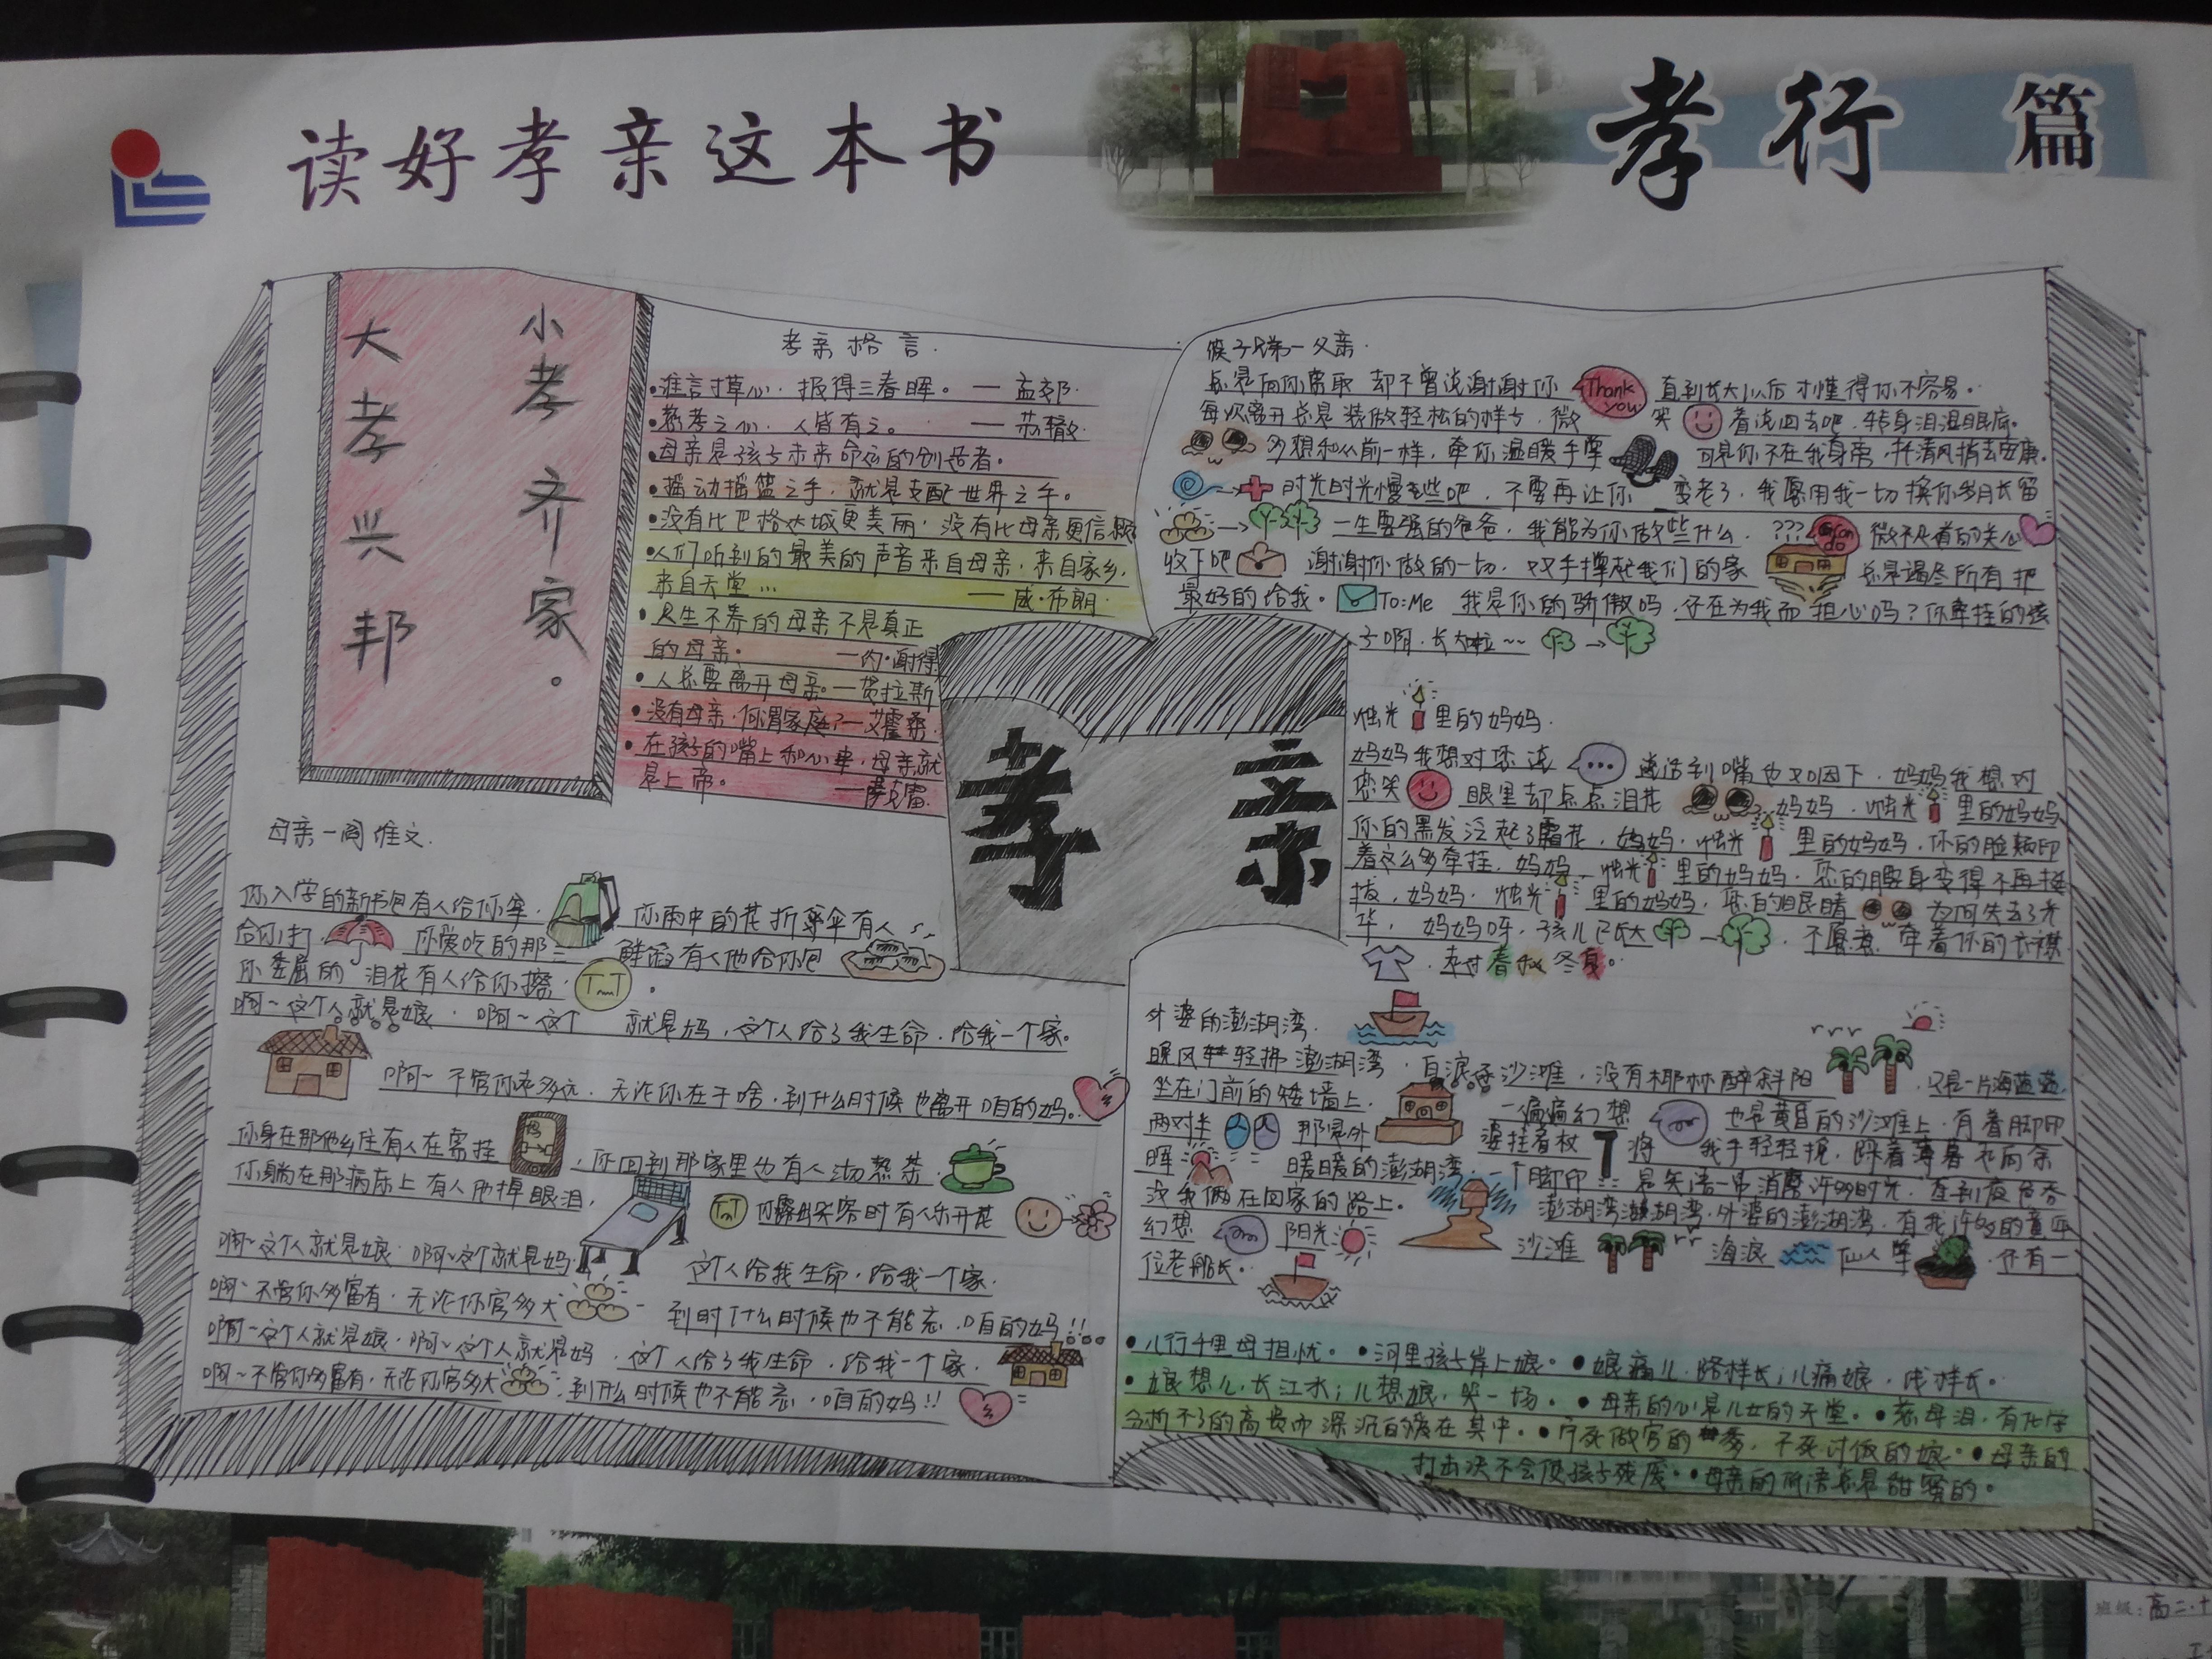 读好孝亲这本书
孝行篇
小孝齐家。
大孝兴邦
孝亲格言.
•谁言寸草心,报得三春晖。—孟郊.
•慈孝之心,人皆有之。—苏辙.
•母亲是孩子未来命运的创造者。
•摇动摇篮之手,就是支配世界之手。
•没有比巴格达城更美丽,没有比母亲更信赖
•人们听到的最美的声音来自母亲,来自家乡,
来自天堂… —威·布朗.
•只生不养的母亲不是真正
的母亲. —约·谢得
•人总要离开母亲.—贺拉斯
•没有母亲,何谓家庭?—艾霍桑
•在孩子的嘴上和心里,母亲就
是上帝。—萨克雷.
孝亲
母亲—阎维文.
你入学的新书包有人给你拿.
你雨中的花折伞有人
给你打. 你爱吃的那三鲜馅有人他给你包
你委屈的泪花有人给你擦. TmT.
啊~这个人就是娘.啊~这个就是妈,这个人给了我生命.给我一个家。
啊~不管你走多远.无论你在干啥.到什么时候也离开咱的妈.
你身在那他乡住有人在牵挂 妈,你回到那家里边有人沏热茶
你躺在那病床上有人他掉眼泪, TmT 你露出笑容时有人乐开花
啊~这个人就是娘.啊~这个就是妈. 这个人给我生命,给我一个家.
啊~不管你多富有,无论你官多大 到时什么时候也不能忘.咱的妈!!
啊~这个人就是娘,啊~这个人就是妈.这个人给了我生命.给我一个家.
啊~不管你多富有,无论你官多大 到什么时候也不能忘.咱的妈!!
筷子兄弟—父亲.
总是向你索取 却不曾说谢谢你 Thank you 直到长大以后才懂得你不容易.
每次离开总是装做轻松的样子,微笑 着说回去吧,转身泪湿眼底.
多想和从前一样,牵你温暖手掌 可是你不在我身旁,托清风捎去安康.
时光时光慢些吧,不要再让你变老了,我愿用我一切换你岁月长留
一生要强的爸爸,我能为你做些什么.??? can do 微不足道的关心
收下吧 谢谢你做的一切,双手撑起我们的家 总是竭尽所有把
最好的给我。 To:Me 我是你的骄傲吗,还在为我而担心吗?你牵挂的孩
子啊.长大啦~~
烛光里的妈妈.
妈妈我想对您说 … 话到嘴边又咽下.妈妈我想对
您笑 眼里却点点泪花 妈妈,烛光里的妈妈
你的黑发泛起了霜花,妈妈,烛光里的妈妈,你的脸颊印
着这么多牵挂,妈妈,烛光里的妈妈,您的腰身变得不再挺
拔,妈妈,烛光里的妈妈,您的眼睛 为何失去了光
华,妈妈呀,孩儿已长大 不愿意 牵着你的衣襟
走过春秋冬夏。
外婆的澎湖湾.
晚风轻拂澎湖湾,白浪逐沙滩,没有椰林醉斜阳 只是一片海蓝蓝
坐在门前的矮墙上. 一遍遍幻想 也是黄昏的沙滩上,有着脚印
两对半 那是外婆拄着杖 将我手轻轻挽,踩着薄暮走向余
晖 暖暖的澎湖湾,一个脚印 是笑语一串消磨许多时光,直到夜色吞
没我俩在回家的路上。澎湖湾澎湖湾,外婆的澎湖湾,有我许多的童年
幻想 阳光 沙滩 海浪 仙人掌 还有一
位老船长.
•儿行千里母担忧。•河里孩子岸上娘。•娘痛儿,路样长;儿痛娘,线样长。
•娘想儿,长江水;儿想娘,哭一场。•母亲的心是儿女的天堂。•慈母泪,有化学
分析不了的高贵而深沉的爱在其中。•宁死做官的爹,不死讨饭的娘。•母亲的
打击决不会使孩子残废。•母亲的所语总是甜蜜的。
班级:高二.十